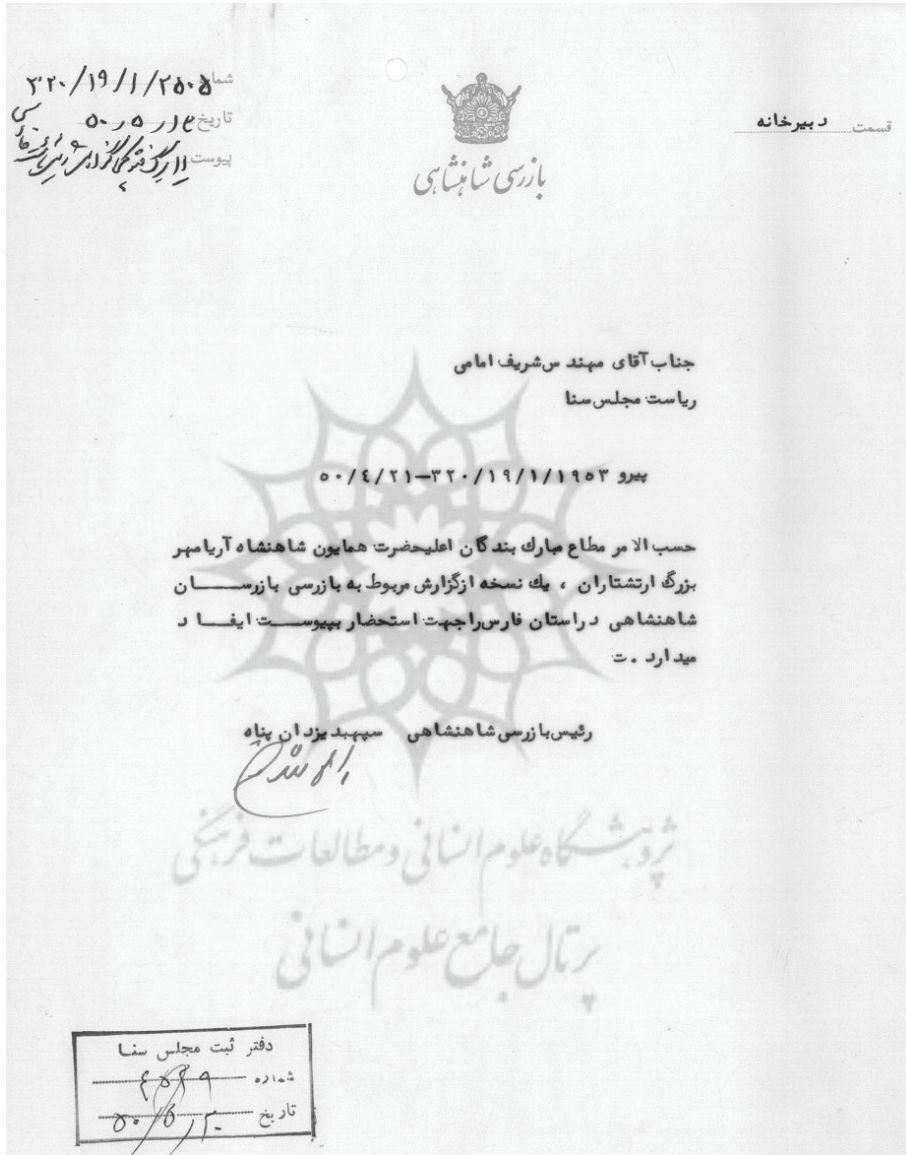 شماره ۳۲۰/۱۹/۱/۲۵۰۵
تاریخ
پیوست
قسمت دبیرخانه
بازرسی شاهنشاهی
جناب آقای مهندس شریف امامی
ریاست مجلس سنا
پیرو ۳۲۰/۱۹/۱/۱۹۵۳-۵۰/۴/۲۱
حسب الامر مطاع مبارك بندگان اعلیحضرت همایون شاهنشاه آریامهر
بزرگ ارتشتاران ، یك نسخه ازگزارش مربوط به بازرسی بازرســـان
شاهنشاهی دراستان فارس‌راجهت استحضار بپیوســت ایفــاد
میدارد .ت
رئیس‌بازرسی‌شاهنشاهی سپهبد یزدان پناه
پژوهشگاه علوم انسانی و مطالعات فرهنگی
پرتال جامع علوم انسانی
دفتر ثبت مجلس سنا
شماره
تاریخ